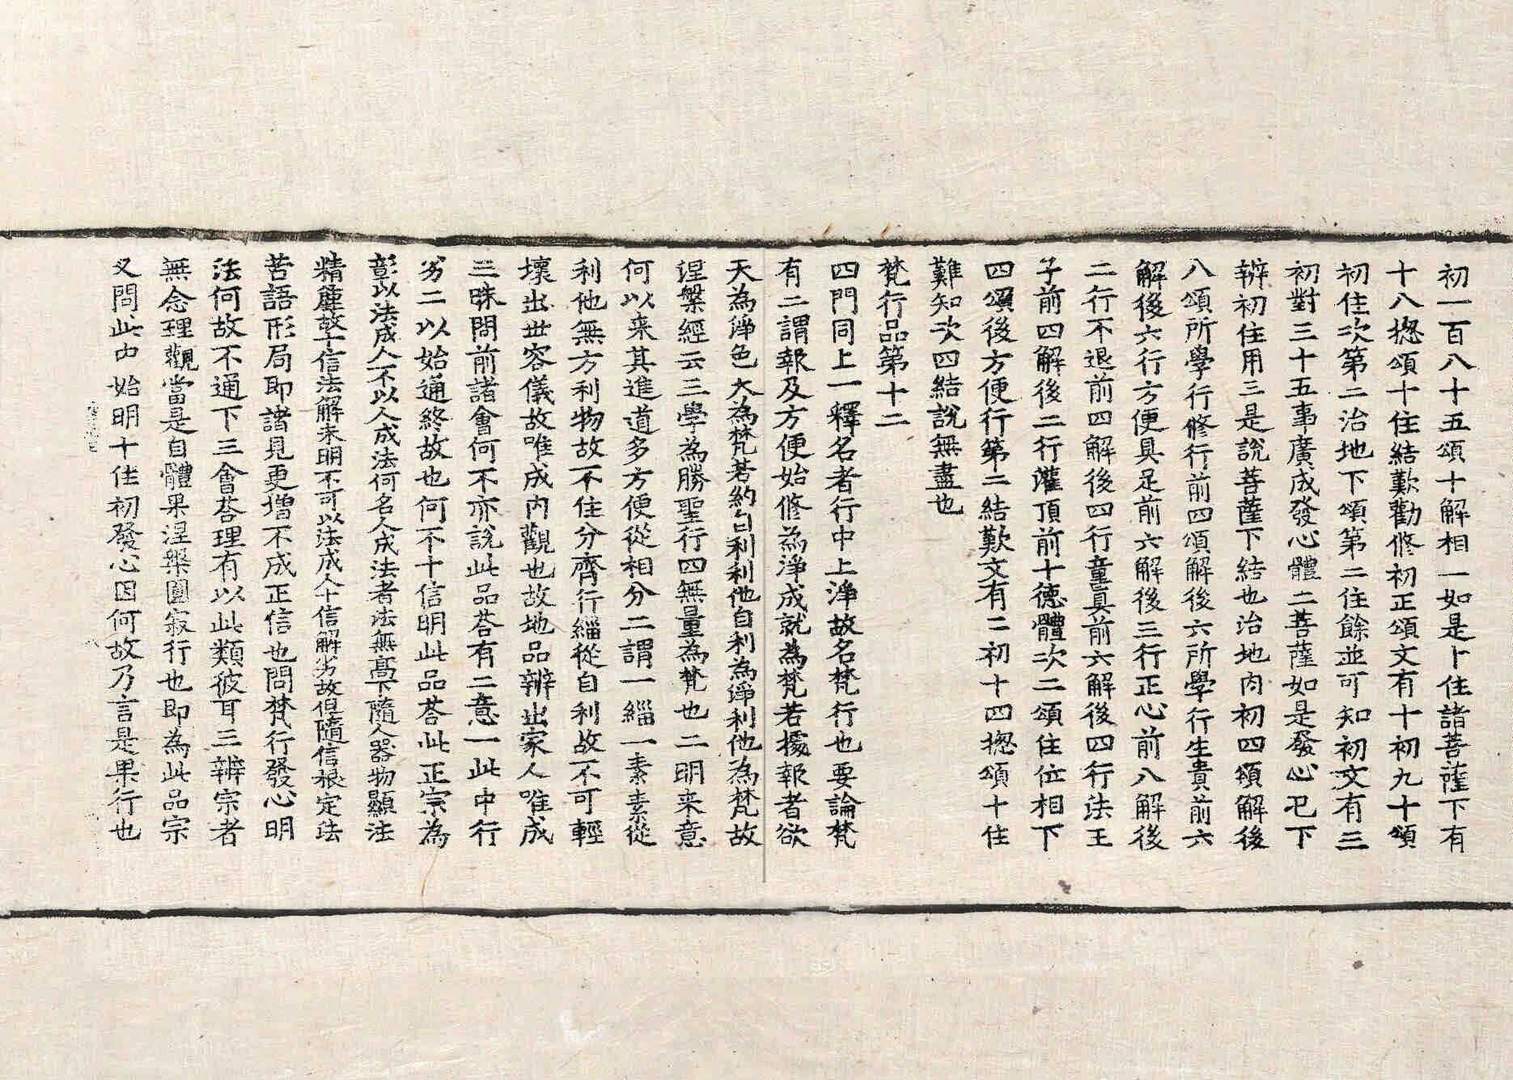 初一百八十五頌十解相一如是卜住諸菩薩下有
十八揔頌十住結歎勸修初正頌文有十初九十頌
初住次第二治地下頌第二住餘並可知初文有三
初對三十五事廣成發心體二菩薩如是發心已下
辨初住用三是說菩薩下結也治地内初四頌解後
八頌所學行修行前四頌解後六所學行生貴前六
解後六行方便具足前六解後三行正心前八解後
二行不退前四解後四行童真前六解後四行法王
子前四解後二行灌頂前十德體次二頌住位相下
四頌後方便行第二結歎文有二初十四揔頌十住
難知次四結說無盡也
梵行品第十二
四門同上一釋名者行中上淨故名梵行也要論梵
有二謂報及方便始修為淨成就為梵若據報者欲
天為淨色大為梵若約自利利他自利為淨利他為梵故
涅槃經云三學為勝聖行四無量為梵也二明来意
何以来其進道多方便從相分二謂一緇一素素從
利他無方利物故不住分齊行緇從自利故不可輕
壞出世容儀故唯成内觀也故地品辨出家人唯成
三昧問前諸會何不亦說此品荅有二意一此中行
劣二以始通終故也何不十信明此品荅此正宗為
彰以法成人不以人成法何名人成法者法無高下隨人器物顯法
精麤故十信法解未明不可以法成人十信解劣故但隨信根定法
苦語形局即諸見更增不成正信也問梵行發心明
法何故不通下三會荅理有以此類彼耳三辨宗者
無念理觀當是自體果涅槃圓寂行也即為此品宗
又問此内始明十住初發心因何故乃言是果行也